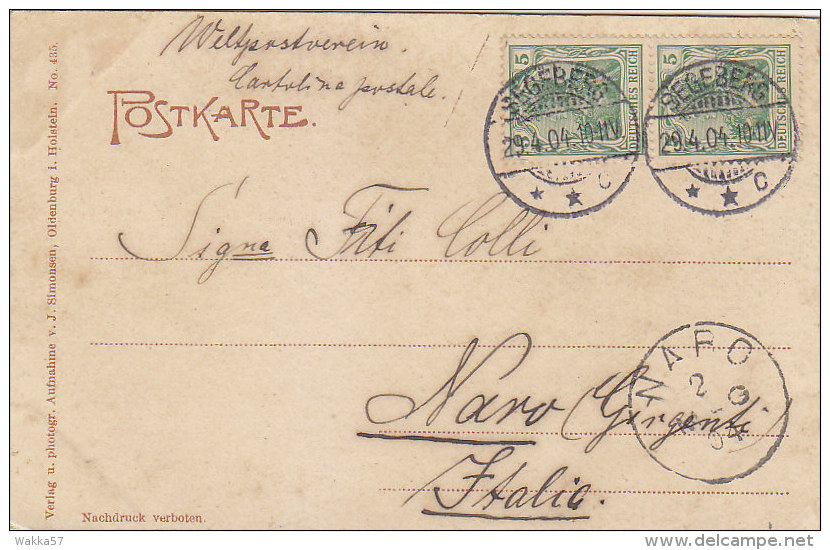 Weltpostverein.
Cartolina postale.
POSTKARTE.
5 5
DEUTSCHES REICH DEUTSCHES REICH
SEGEBERG SEGEBERG
29.4.04.10-11V. 29.4.04.10-11V.
C C
Signa Fifi Colli
NARO
2
04
Naro (Girgenti)
Italia.
Verlag u. photogr. Aufnahme v. J. Simonsen, Oldenburg i. Holstein. No. 435.
Nachdruck verboten.
Wakka57
delcampe.net